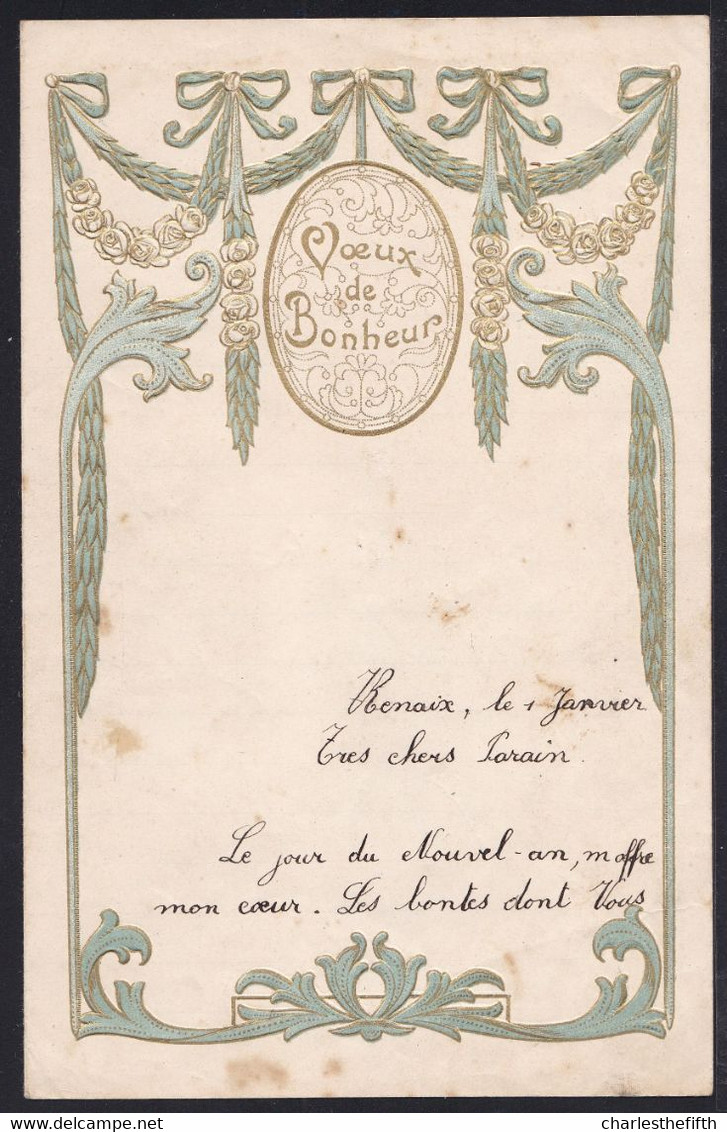 Vœux
de
Bonheur
Renaix, le 1 Janvier
Tres chers Parain.
Le jour du Nouvel-an, m offre
mon cœur. Les bontes dont Vous
charlesthefifth